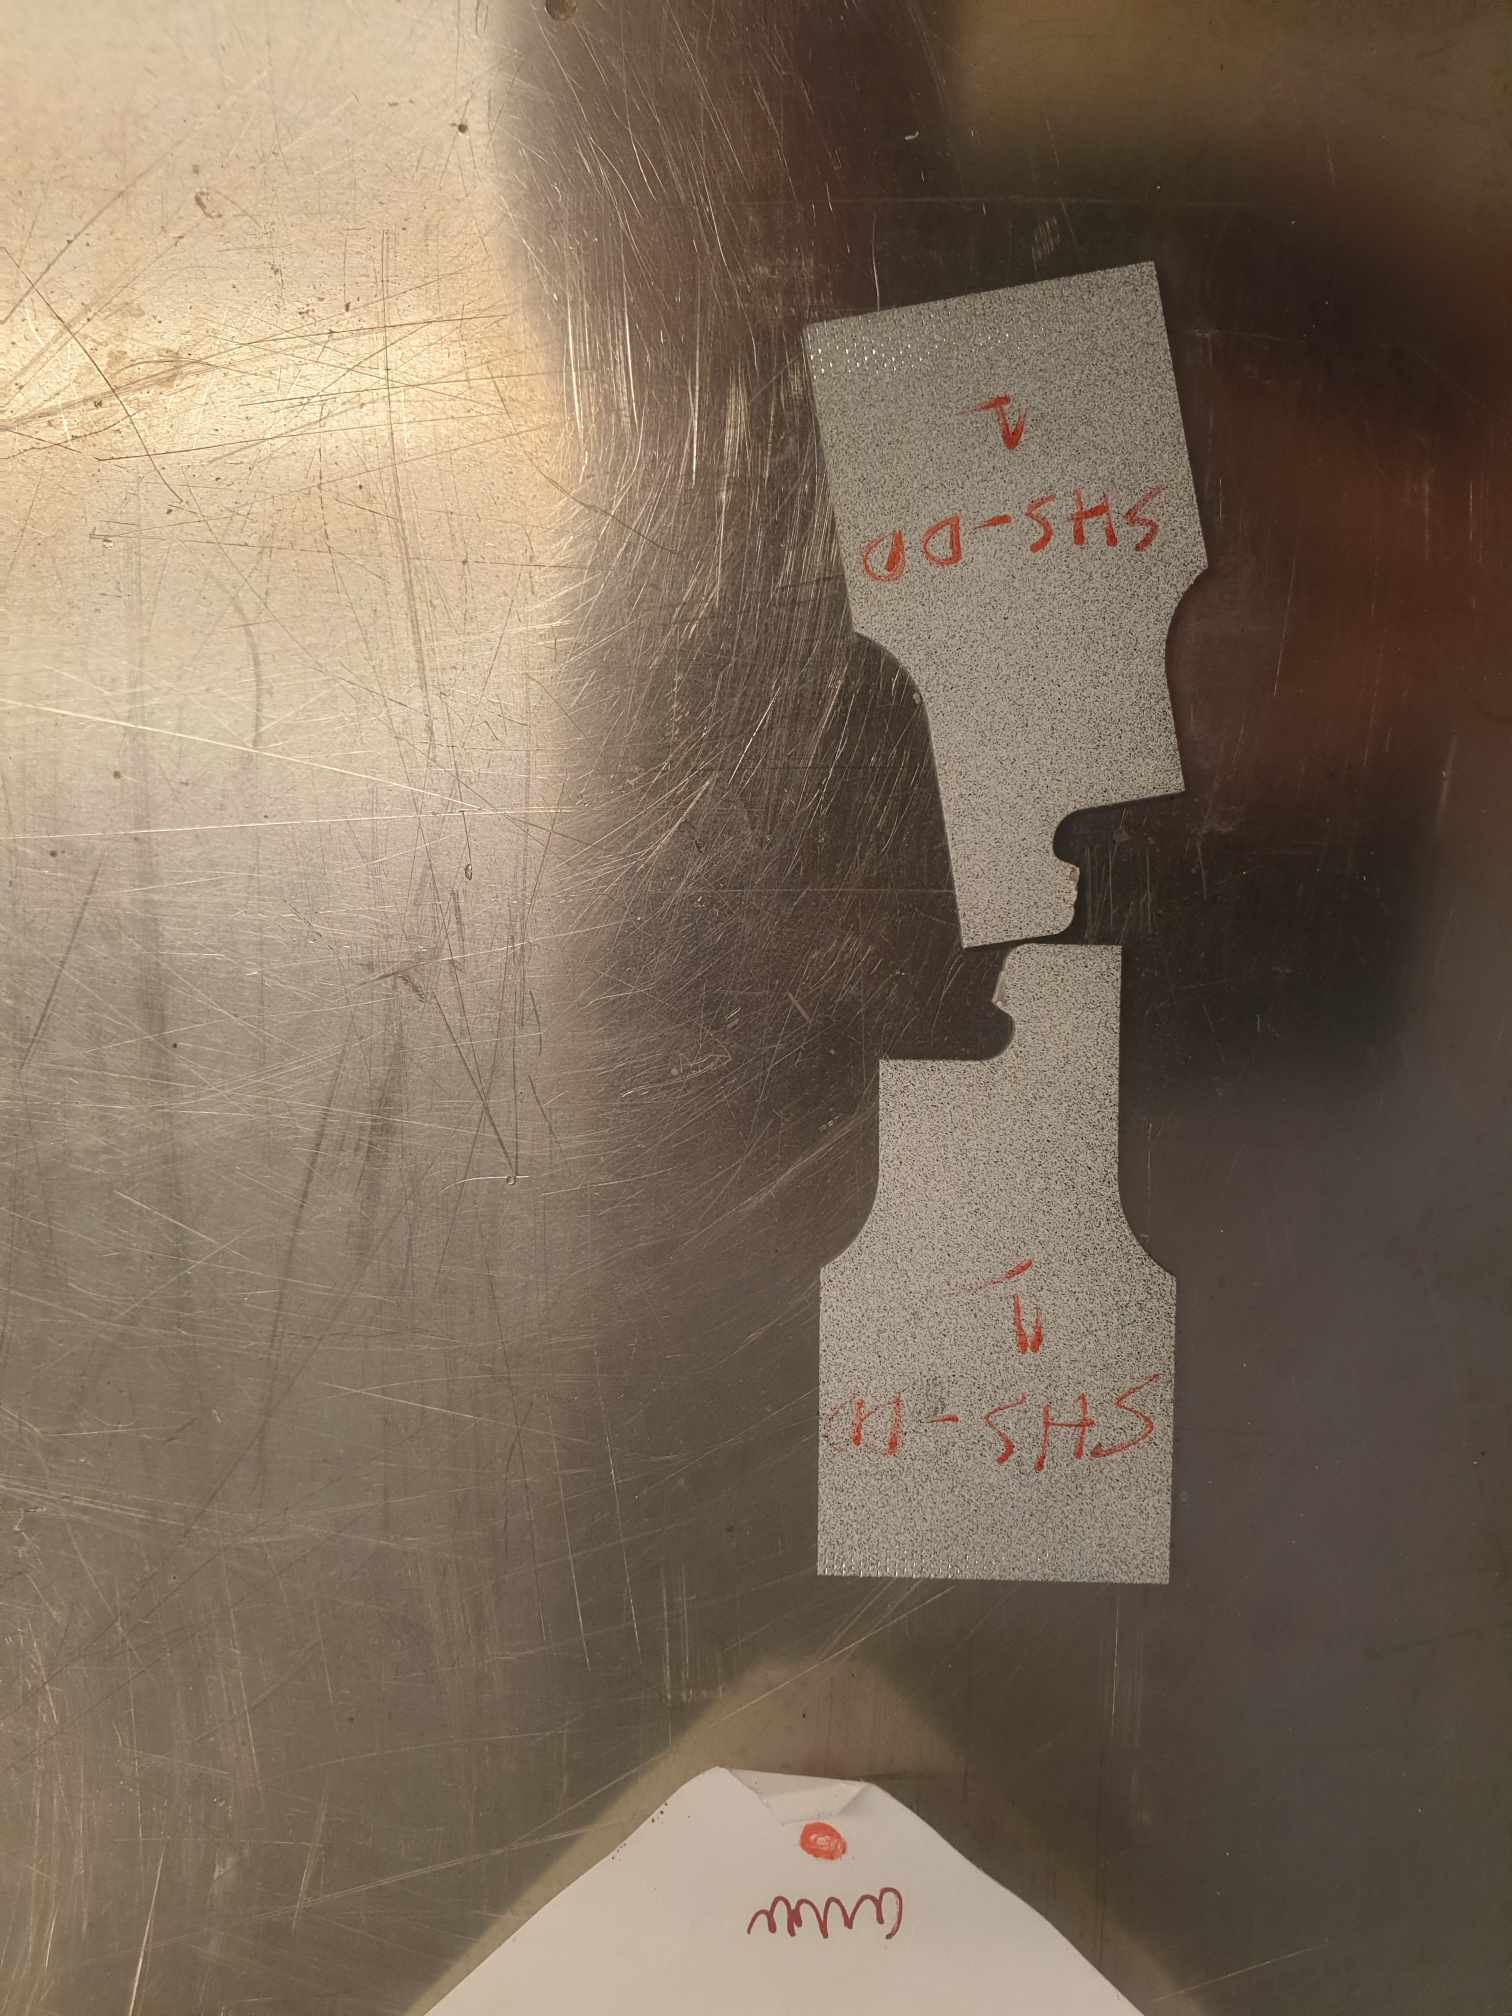 SHS-DD
1
SHS-DD
1